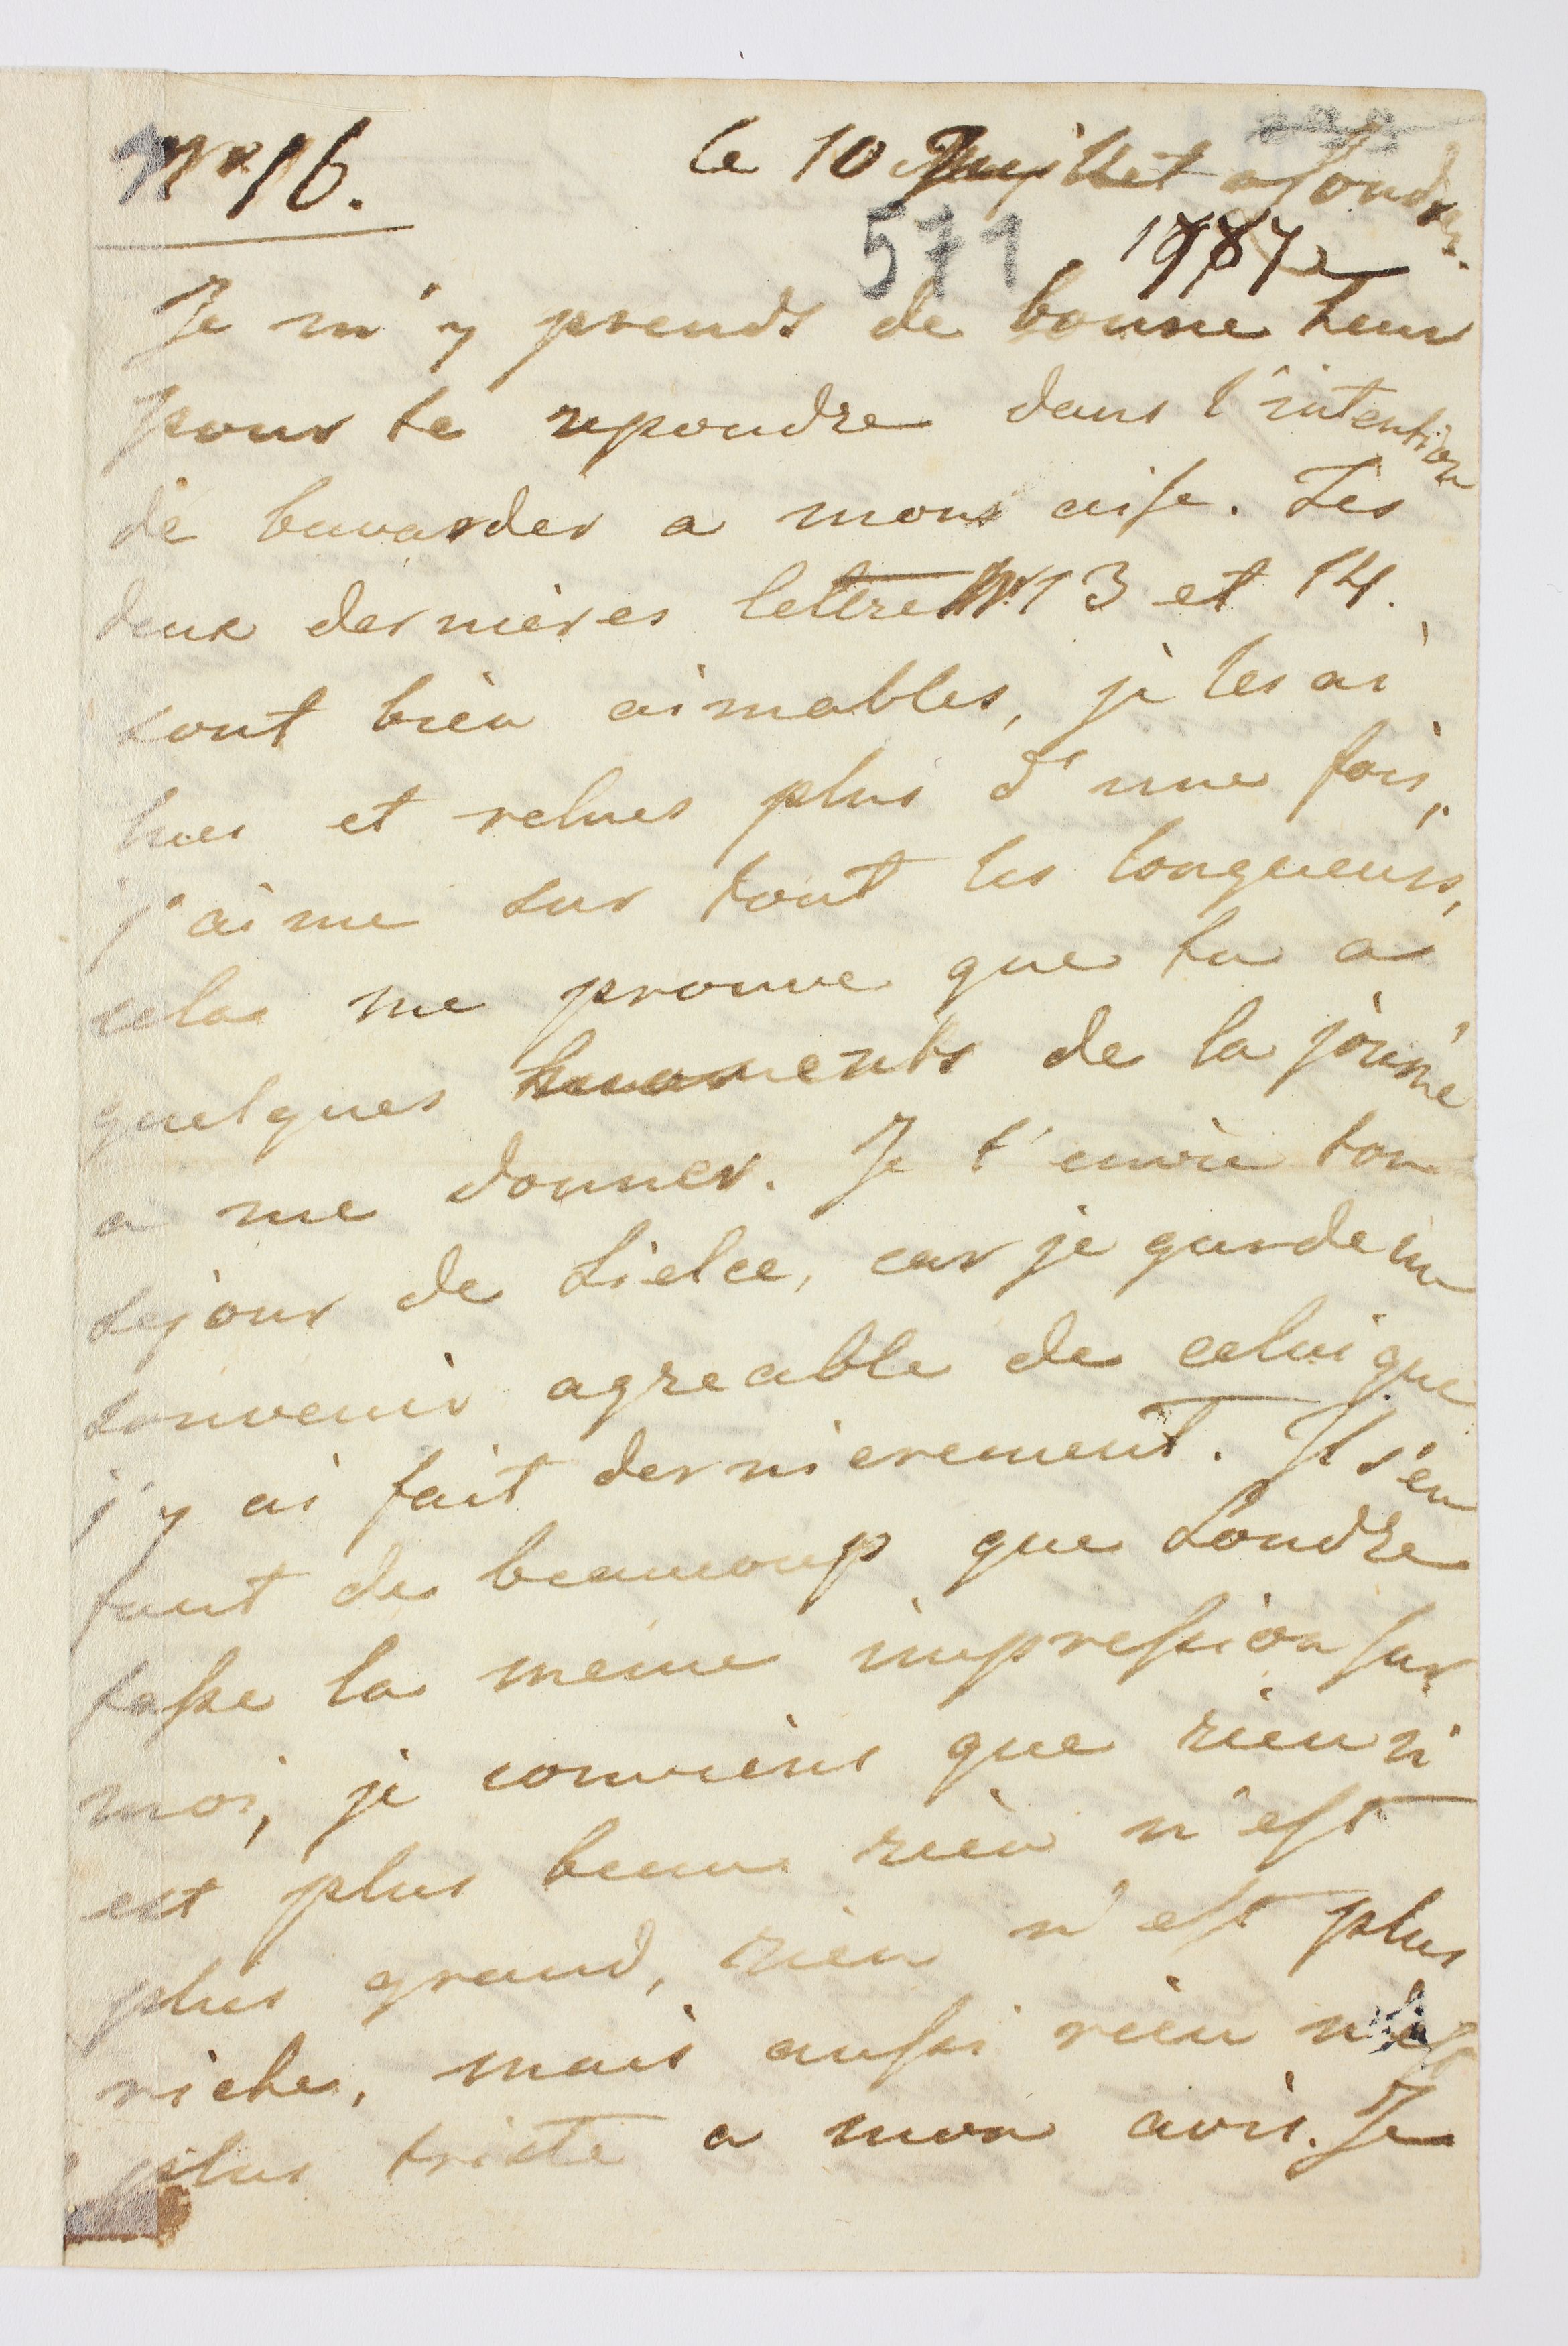 Nr 16. le 10 Juillet a Londres.
571 1787
Je m'y prends de bonne heur
pour te repondre dans l'intention
de bavarder a mons aise. Les
deux dernieres lettres Nr. 13 et 14.
sont bien aimables, je les ai
lues et relues plus d'une fois,
j'aime sur tout les longueurs,
cela me prouve que tu a
quelques moments de la journé
a me donner. Je t'envie ton
sejour de Sielce, car je garde un
souvenir agreable de celui que
j'y ai fait dernierement. Il s'en
faut de beaucoup que Londre
fasse la meme impression sur
moi, je conviens que rien n'
est plus beau rien n'est
plus grand, rien n'est plus
riche, mais aussi rien n'est
plus triste a mon avis. Je